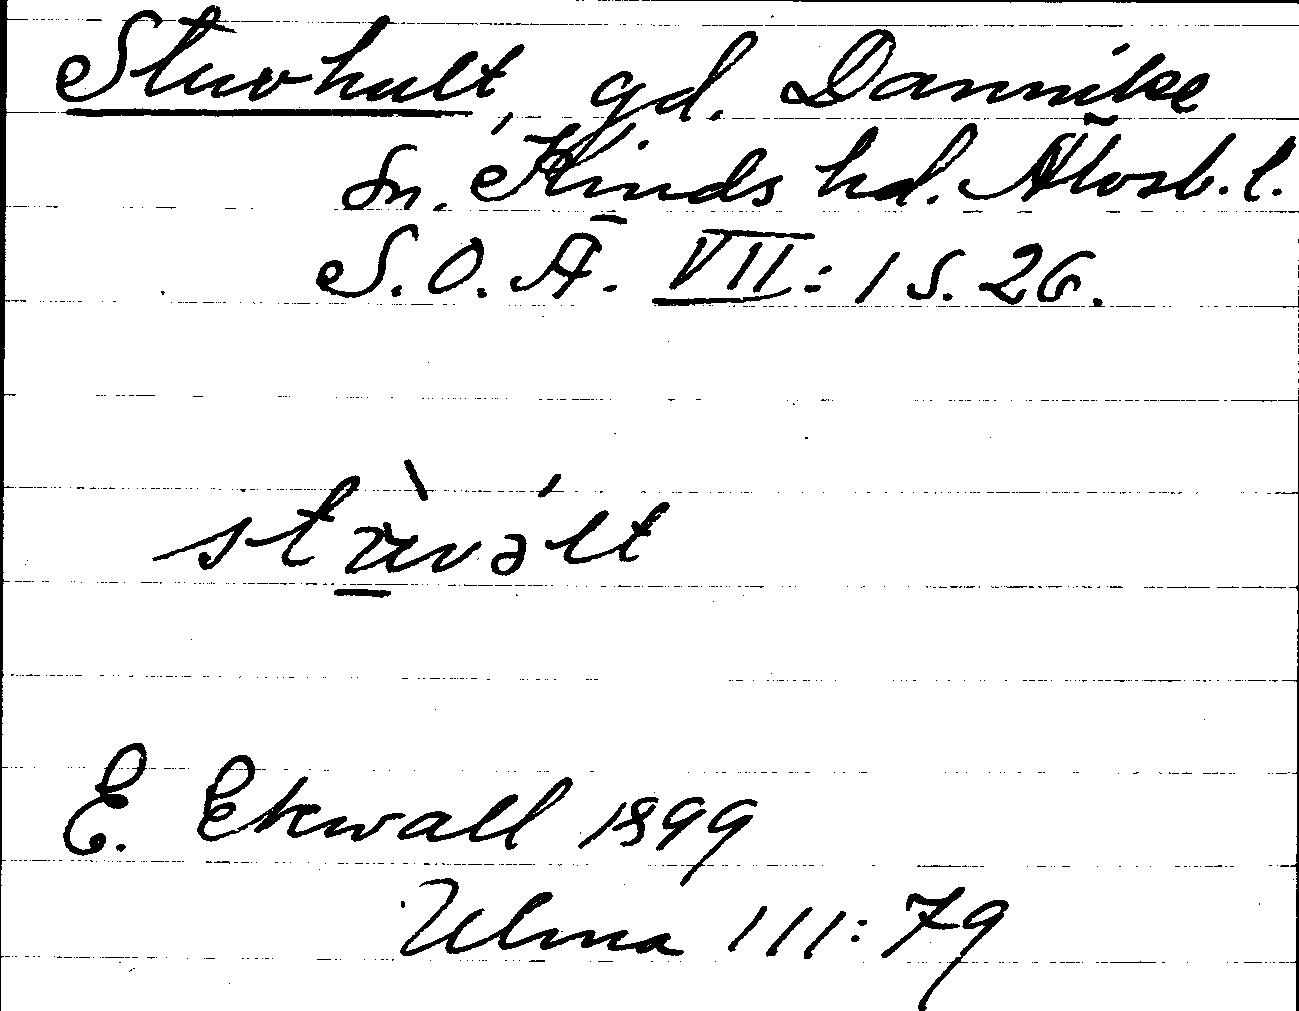 Stuvhult, gd. Dannike
sn. Kinds hd. Älvsb. l.
S.O.Ä. VII: 1 S. 26.
E. Ekwall 1899
Ulma 111:79